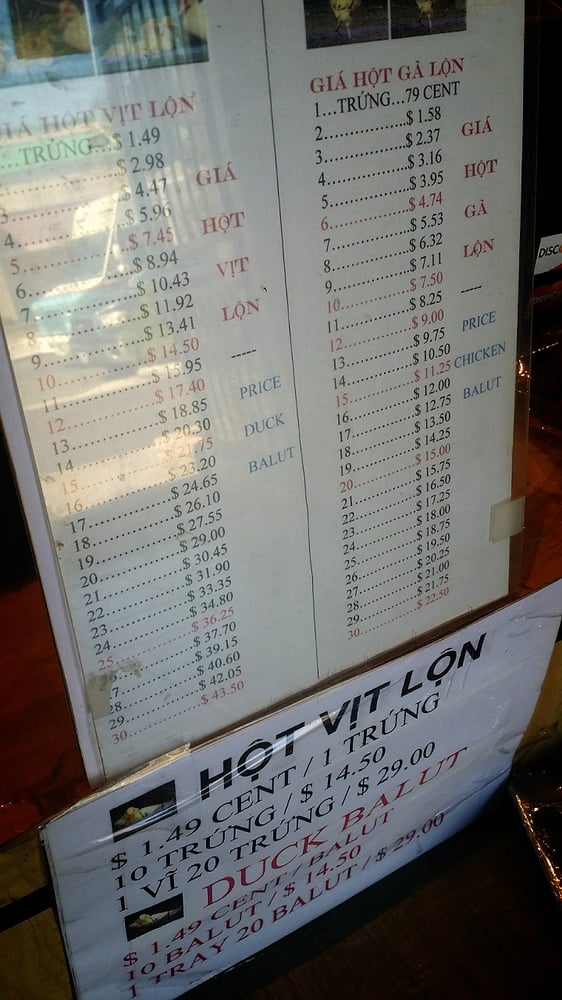 GIÁ HỘT VỊT LỘN
...TRỨNG...$ 1.49
...............$ 2.98
3...............$ 4.47
4...............$ 5.96
5...............$ 7.45
6...............$ 8.94
7...............$ 10.43
8...............$ 11.92
9...............$ 13.41
10...............$ 14.50
11...............$ 15.95
12...............$ 17.40
13...............$ 18.85
14...............$ 20.30
15...............$ 21.75
16...............$ 23.20
17...............$ 24.65
18...............$ 26.10
19...............$ 27.55
20...............$ 29.00
21...............$ 30.45
22...............$ 31.90
23...............$ 33.35
24...............$ 34.80
25...............$ 36.25
26...............$ 37.70
27...............$ 39.15
28...............$ 40.60
29...............$ 42.05
30...............$ 43.50
GIÁ
HỘT
VỊT
LỘN
-----
PRICE
DUCK
BALUT
GIÁ HỘT GÀ LỘN
1...TRỨNG...79 CENT
2...............$ 1.58
3...............$ 2.37
4...............$ 3.16
5...............$ 3.95
6...............$ 4.74
7...............$ 5.53
8...............$ 6.32
9...............$ 7.11
10...............$ 7.50
11...............$ 8.25
12...............$ 9.00
13...............$ 9.75
14...............$ 10.50
15...............$ 11.25
16...............$ 12.00
17...............$ 12.75
18...............$ 13.50
19...............$ 14.25
20...............$ 15.00
21...............$ 15.75
22...............$ 16.50
23...............$ 17.25
24...............$ 18.00
25...............$ 18.75
26...............$ 19.50
27...............$ 20.25
28...............$ 21.00
29...............$ 21.75
30...............$ 22.50
GIÁ
HỘT
GÀ
LỘN
-----
PRICE
CHICKEN
BALUT
HỘT VỊT LỘN
$ 1.49 CENT / 1 TRỨNG
10 TRỨNG / $ 14.50
1 VĨ 20 TRỨNG / $ 29.00
DUCK BALUT
$ 1.49 CENT / BALUT
10 BALUT / $ 14.50
1 TRAY 20 BALUT / $ 29.00